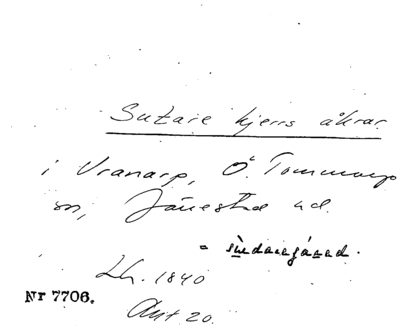 Sutare kjerrs åkrar
i Vranarp, Ö. Tommarp
sn, Järrestad hd.
Lh. 1840
Nr 7706.
Akt 20.